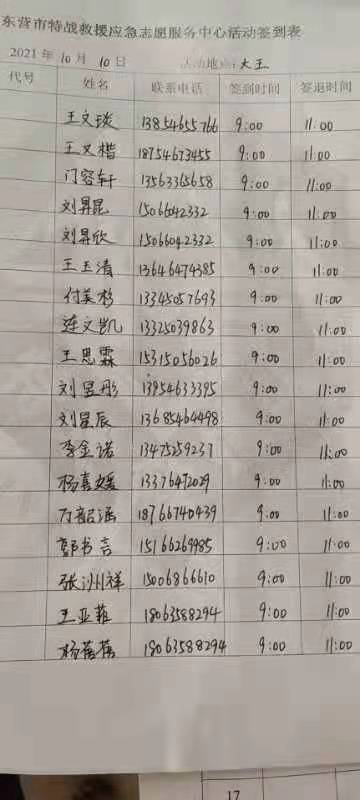 东营市特战救援应急志愿服务中心活动签到表
2021年10月10日 活动地点:大王
代号 姓名 联系电话 签到时间 签退时间
王文琰 13854655766 9:00 11:00
王文楷 18754673455 9:00 11:00
门容轩 13563365658 9:00 11:00
刘昇昆 15066042332 9:00 11:00
刘昇欣 15066042332 9:00 11:00
王玉清 13646474385 9:00 11:00
付美杉 13345057693 9:00 11:00
连文凯 13325039863 9:00 11:00
王思霖 15315056026 9:00 11:00
刘昱彤 13954633395 9:00 11:00
刘星辰 13685464498 9:00 11:00
李金诺 13475259237 9:00 11:00
杨喜媛 13376472029 9:00 11:00
万韶涵 18766740439 9:00 11:00
郭书言 15166269985 9:00 11:00
张洲祥 15006866610 9:00 11:00
王亚菲 18063588294 9:00 11:00
杨蓓蓓 18063588294 9:00 11:00
17